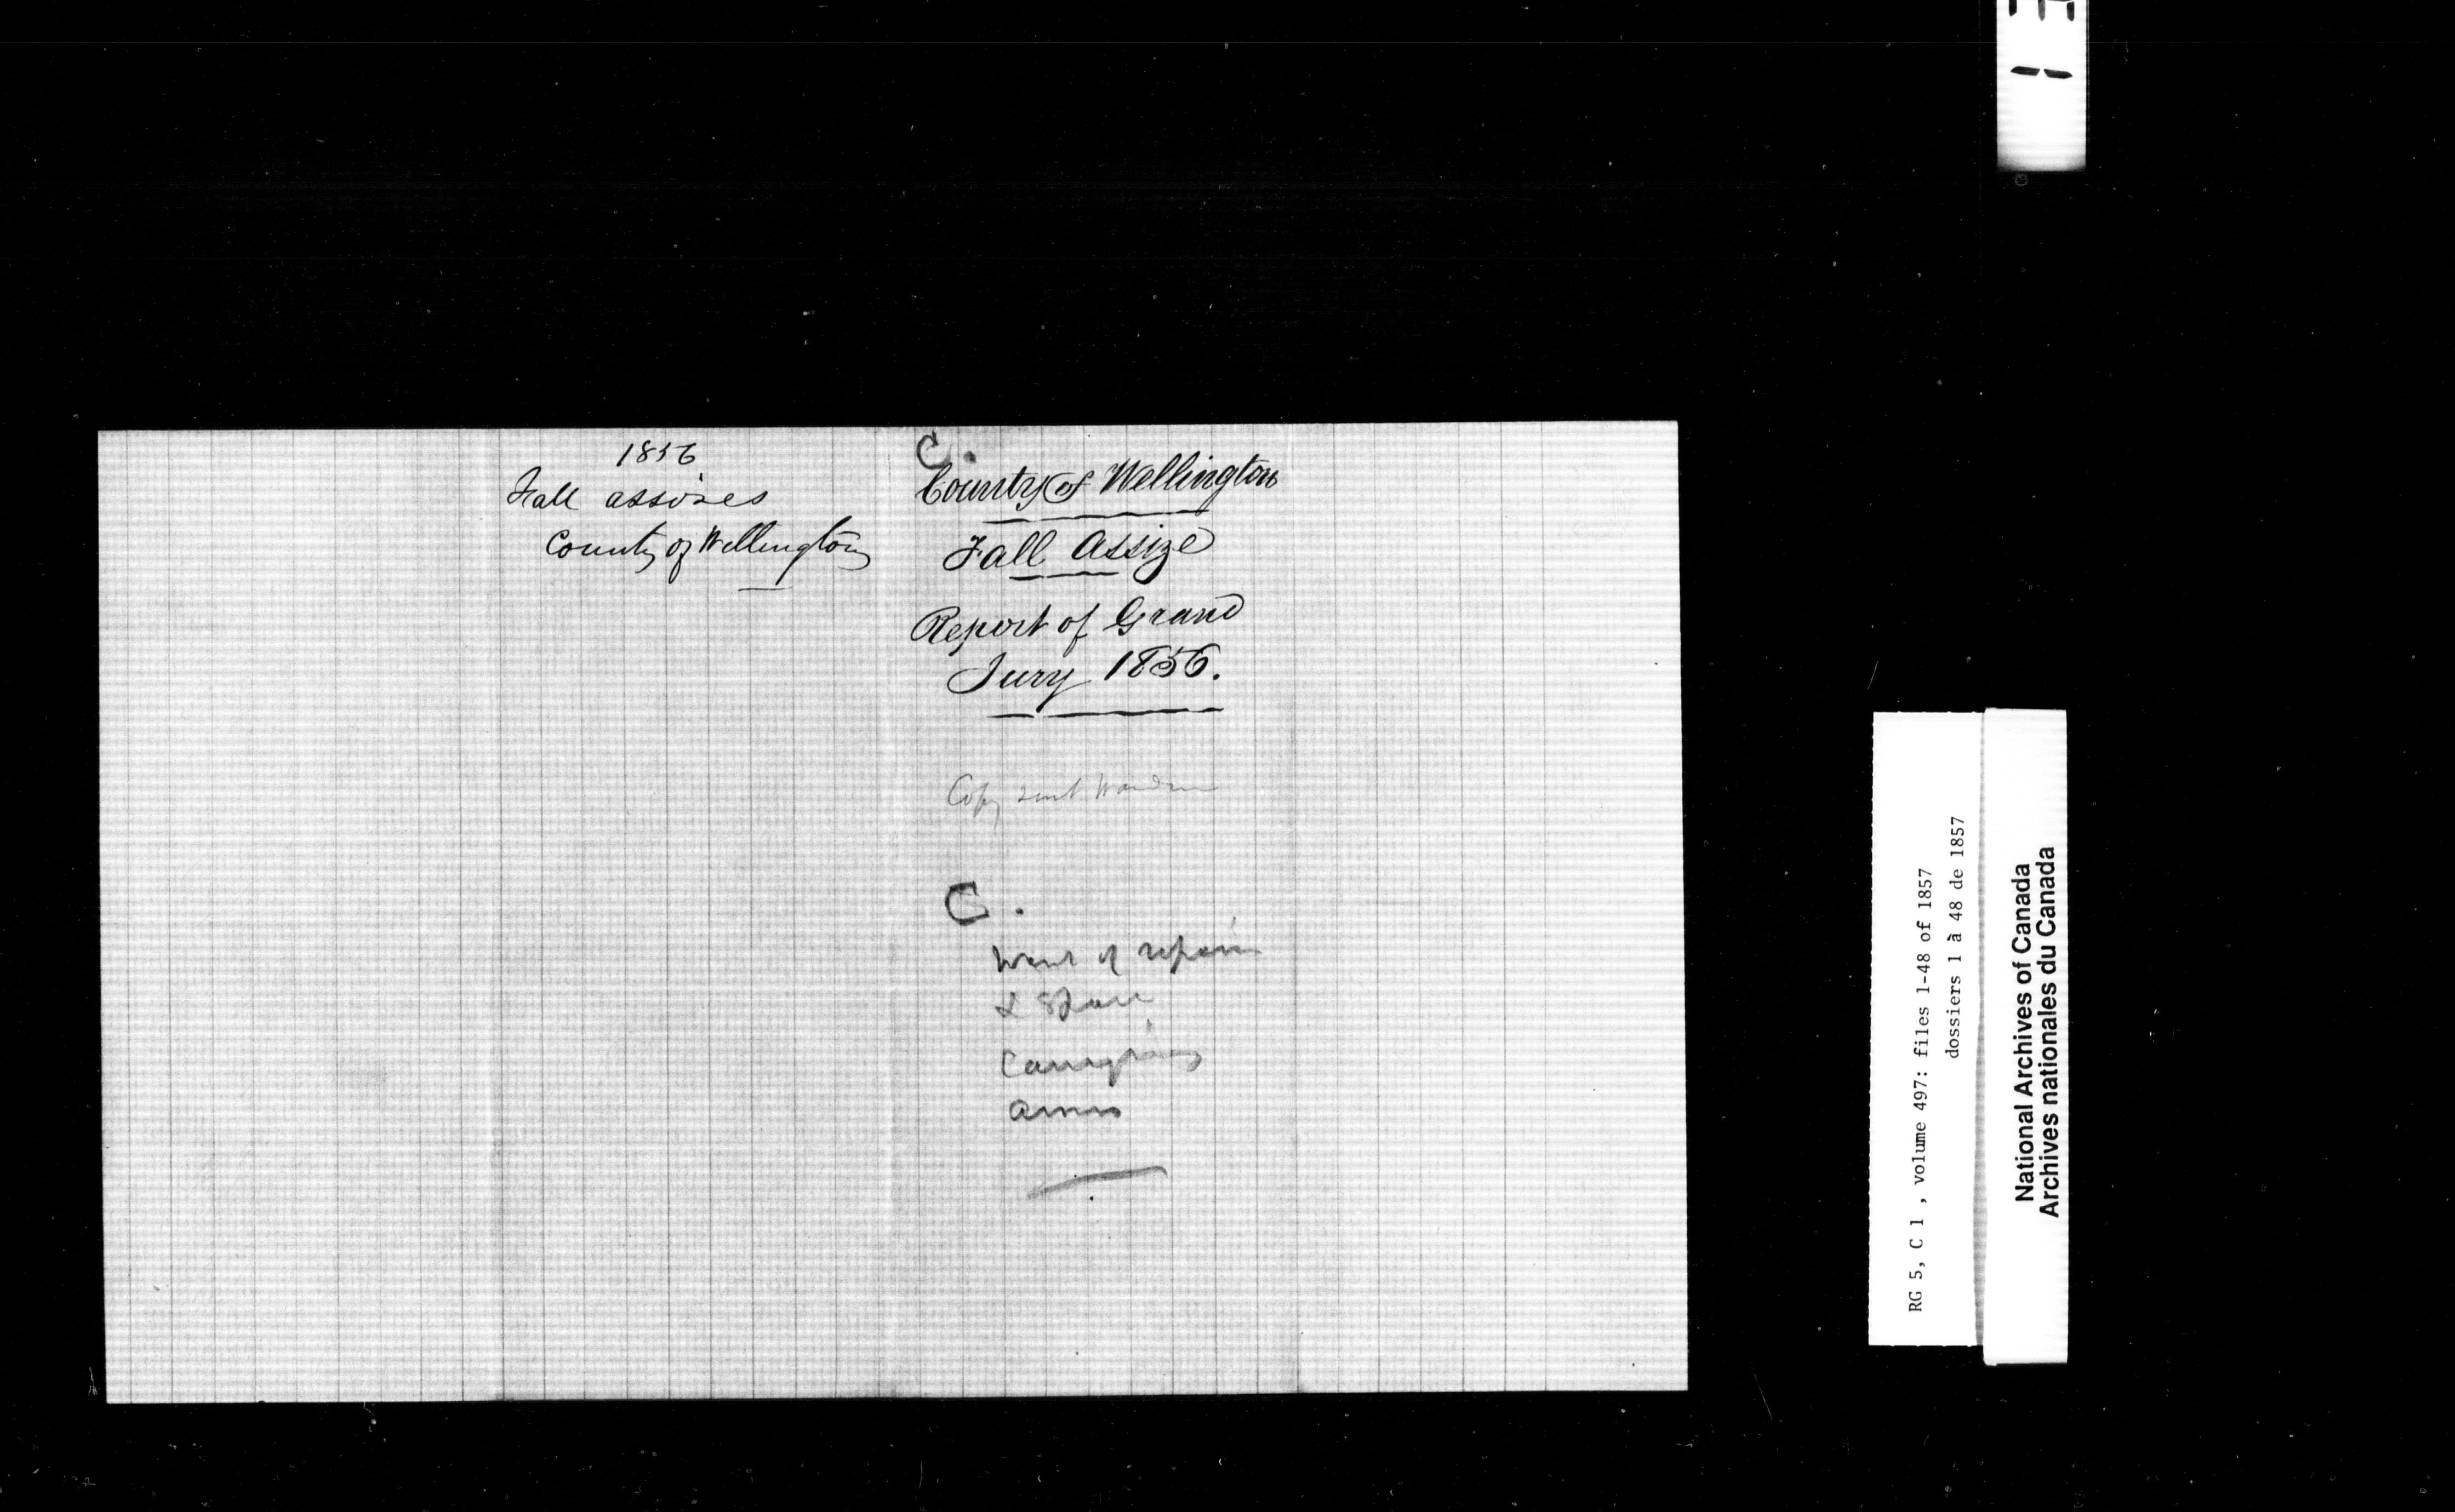 1856
Fall assizes
County of Wellington
C.
County of Wellington
Fall Assize
Report of Grand
Jury 1856.
Copy sent Warden
C.
Want of repairs
& Space
Carrying
arms
RG 5, C 1 , volume 497: files 1-48 of 1857
dossiers 1 à 48 de 1857
National Archives of Canada
Archives nationales du Canada